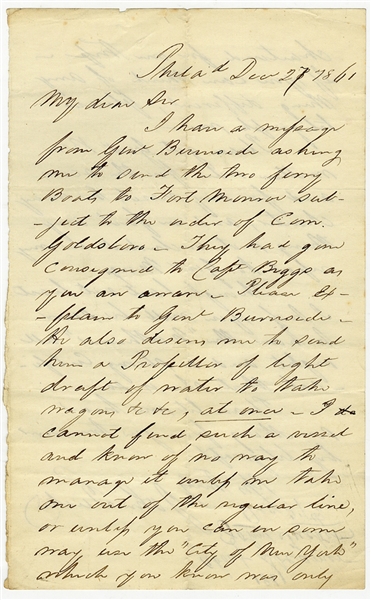 Philad Dec 27 1861
My dear Sir
I have a message
from Genl Burnside asking
me to send the two ferry
Boats to Fort Monroe sub-
-ject to the order of Com.
Goldsboro - They had gone
consigned to Capt Biggs as
you are aware - Please ex-
-plain to Genl Burnside -
He also desires me to send
him a Propeller of light
draft of water to take
wagons &c &c, at once - I
cannot find such a vessel
and know of no way to
manage it unless we take
one out of the regular line,
or unless you can in some
way use the "City of New York"
which you know was only